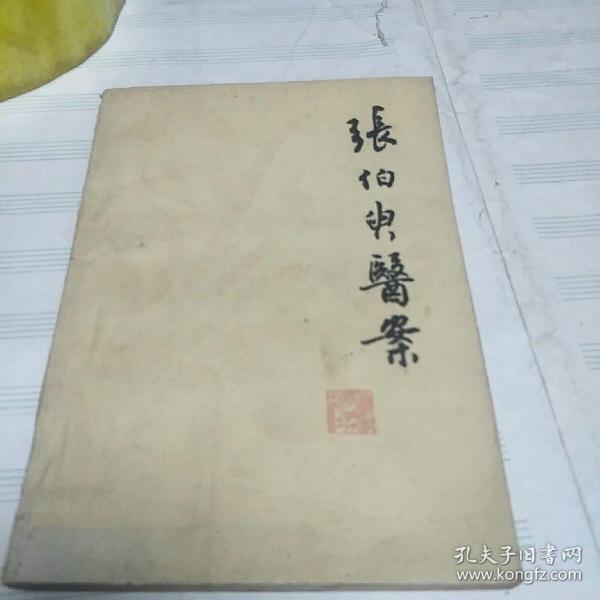 張伯臾醫案
孔夫子旧书网
www.kongfz.com